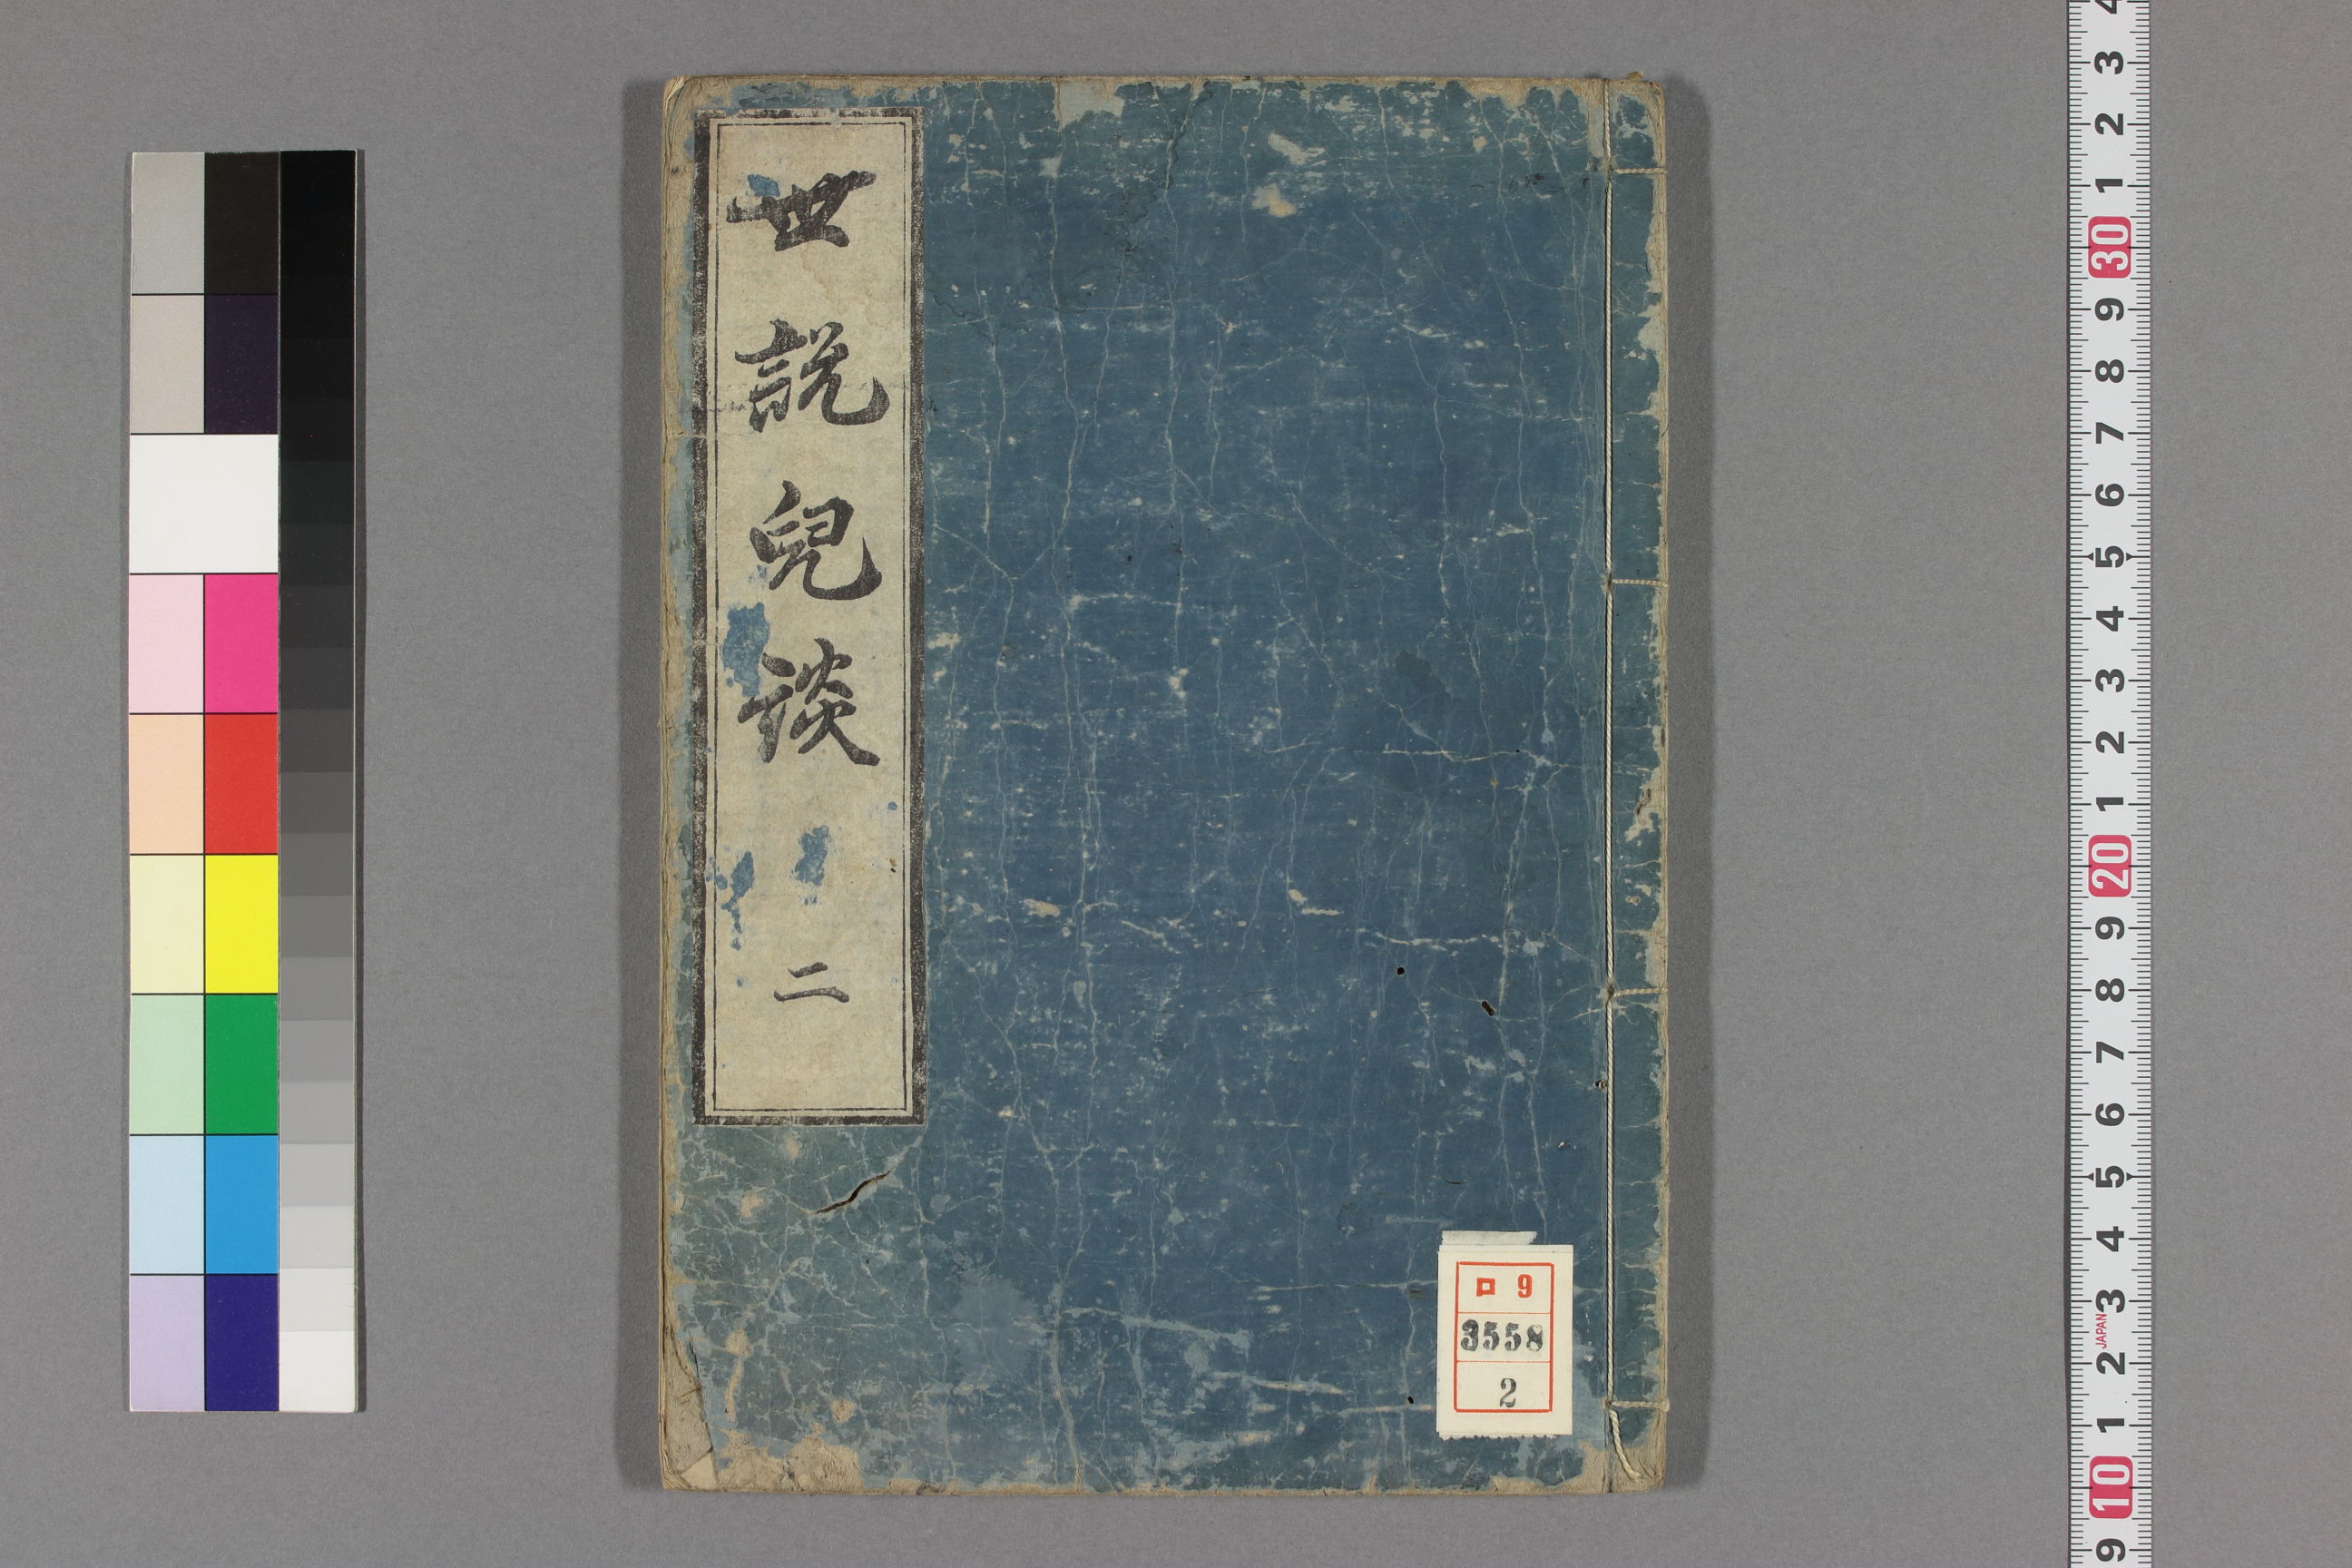 世說兒談 二
ロ 9
3558
2
4
3
2
1
30
9
8
7
6
5
4
3
2
1
20
9
8
7
6
5
4
3
JAPAN
2
1
10
9